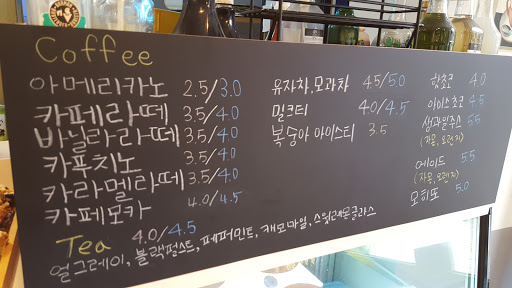 Coffee
아메리카노 2.5/3.0
카페라떼 3.5/4.0
바닐라라떼 3.5/4.0
카푸치노 3.5/4.0
카라멜라떼 3.5/4.0
카페모카 4.0/4.5
Tea 4.0/4.5
얼그레이, 블랙펄스트, 페퍼민트, 캐모마일, 스윗레몬글라스
유자차, 모과차 4.5/5.0
밀크티 4.0/4.5
복숭아 아이스티 3.5
핫초코 4.0
아이스초코 4.5
생과일주스 5.5
(자몽, 오렌지)
에이드 5.5
(자몽, 오렌지)
모히또 5.0